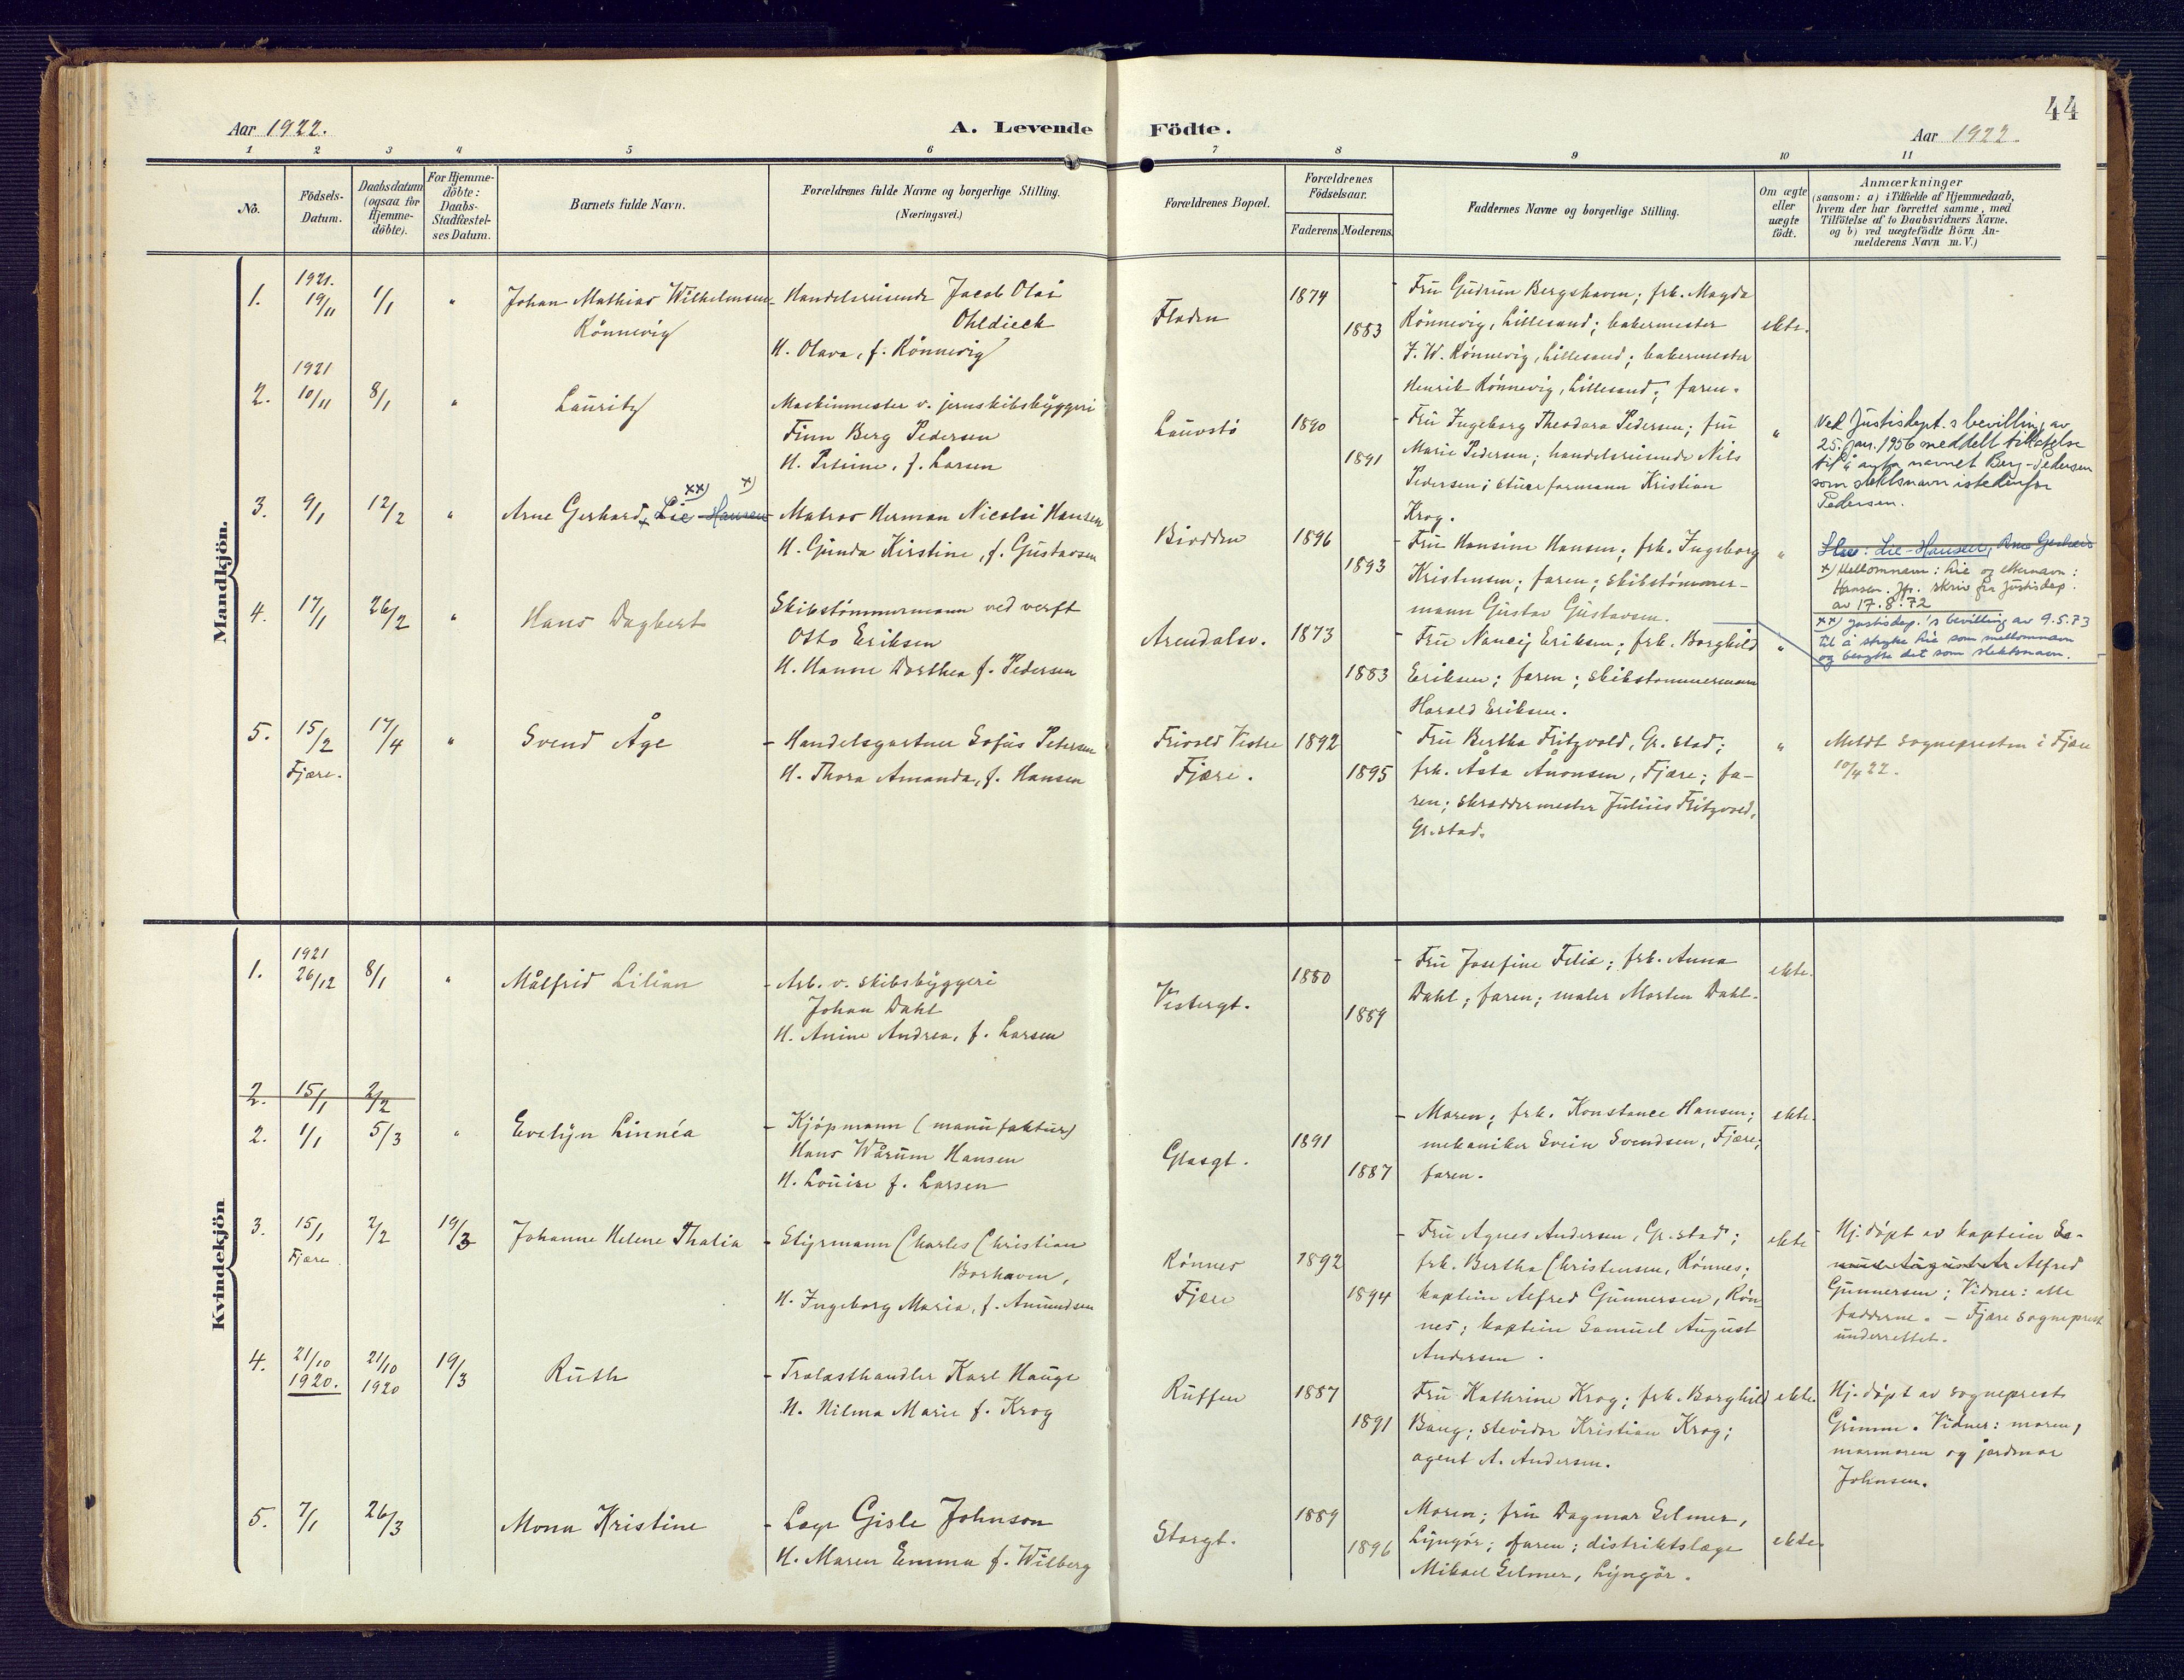 44
Aar 1922.
A. Levende Födte.
Aar 1922.
1 2 3 4 5 6 7 8 9 10 11
No.
Födsels-
Datum.
Daabsdatum
(ogsaa for
Hjemme-
döbte).
For Hjemme-
döbte:
Daabs-
Stadfæstel-
ses Datum.
Barnets fulde Navn.
Forældrenes fulde Navne og borgerlige Stilling.
(Næringsvei.)
Forældrenes Bopæl.
Forældrenes
Födselsaar.
Faderens Moderens
Faddernes Navne og borgerlige Stilling.
Om ægte
eller
uægte
födt.
Anmærkninger
(saasom: a) i Tilfælde af Hjemmedaab,
hvem der har forrettet samme, med
Tilföielse af to Daabsvidners Navne,
og b) ved uægtefödte Börn An-
melderens Navn m. V.)
Mandkjön.
1.
1921.
19/11
1/1
"
Johan Mathias Wilhelmsen
Rönnevig
Handelsreisende Jacob Olai
Ohldieck
H. Olava, f. Rönnevig
Floden
1874
1883
- Fru Gudrun Bergshaven; frk. Magda
Rönnevig, Lillesand; bakermester
J. W. Rönnevig, Lillesand; bakermester
Henrik Rönnevig, Lillesand; faren.
ekte.
2.
1921
10/11
8/1
"
Lauritz
Maskinmester v. jernskibsbyggeri
Finn Berg Pedersen
H. Petrine, f. Larsen
Lauvstö
1890
1891
- Fru Ingeborg Theodora Pedersen; fru
Marie Pedersen; handelsreisende Nils
Pedersen; stuerformann Kristian
Krog.
"
Ved Justisdept.s bevilling av
25. jan. 1956 meddelt tillatelse
til å anta navnet Berg-Pedersen
som slektsnavn istedenfor
Pedersen.
3.
9/1
12/2
"
Arne Gerhard x Lie Hansen
xx) x)
Matros Herman Nicolai Hansen
H. Gunda Kirstine, f. Gustavsen
Biodden
1896
1893
- Fru Hansine Hansen; frk. Ingeborg
Kristensen; faren; skibstömmer-
mann Gustav Gustavsen.
"
Lie-Hansen, Arne Gerhard
x) Mellomnavn: Lie og etternavn:
Hansen. Jfr. skriv fra Justisdep.
av 17.8.72
xx) justisdep.'s bevilling av 9.5.73
til å stryke Lie som mellomnavn
og benytte det som slektsnavn.
4.
17/1
26/2
"
Hans Dagbert
Skibstömmermann ved verft
Otto Eriksen
H. Hanne Dorthea f. Pedersen
Arendalsv.
1873
1883
- Fru Nancy Eriksen; frk. Borghild
Eriksen; faren; skibstømmermann
Harald Eriksen.
"
5.
15/2
Fjære.
17/4
"
Svend Åge
- Handelsgartner Sofus Petersen
H. Thora Amanda, f. Hansen
Frivold Vestre
Fjære.
1892
1895
- Fru Bertha Fritzvold, Gr.stad;
frk. Asta Aronsen, Fjære; fa-
ren; skreddermester Julius Fritzvold,
Gr.stad.
"
Meldt sognepresten i Fjære
10/4 22.
Kvindekjön
1.
1921
26/12
8/1
"
Målfrid Lilian
- Arb. v. skibsbyggeri
Johan Dahl
H. Anine Andrea, f. Larsen
Vestergt.
1880
1889
- Fru Josefine Felix; frk. Anna
Dahl; faren; maler Morten Dahl.
ekte.
2. 15/1 2/2
2.
1/1
5/3
"
Evelyn Linnéa
- Kjøpmann (manufaktur)
Hans Wårum Hansen
H. Louise f. Larsen
Glasgt.
1891
1887
- Moren; frk. Konstance Hansen;
mekaniker Svein Svendsen, Fjære;
faren.
ekte.
3.
15/1
Fjære
2/2
19/3
Johanne Helene Thalia
- Styrmann Charles Christian
Borhaven,
H. Ingeborg Maria, f. Amundsen
Rönnes
Fjære
1892
1894
- Fru Agnes Andersen, Gr.stad;
frk. Bertha Christensen, Rönnes;
kaptein Alfred Gunnersen, Rön-
nes; kaptein Samuel August
Andersen.
ekte
Hj.døpt av kaptein Sa-
muel August An Alfred
Gunnersen; Vidner: alle
fadderne. - Fjære sogneprest
underrettet.
4.
21/10
1920.
21/10
1920
19/3
Ruth
- Trelasthandler Karl Hauge
H. Hilma Marie f. Krog
Ruffen
1887
1891
Fru Kathrine Krog; frk. Borghild
Bang; stevidor Kristian Krog;
agent A. Andersen.
ekte.
Hj.døpt av sogneprest
Grimm. Vidner: moren,
mormoren og jordmor
Johnsen.
5.
7/1
26/3
Mona Kristine
- Læge Gisle Johnson
H. Maren Emma f. Wilberg
Storgt.
1889
1896
Moren; fru Dagmar Selmer,
Lyngör; faren; distriktslæge
Mikael Selmer, Lyngör.
ekte.